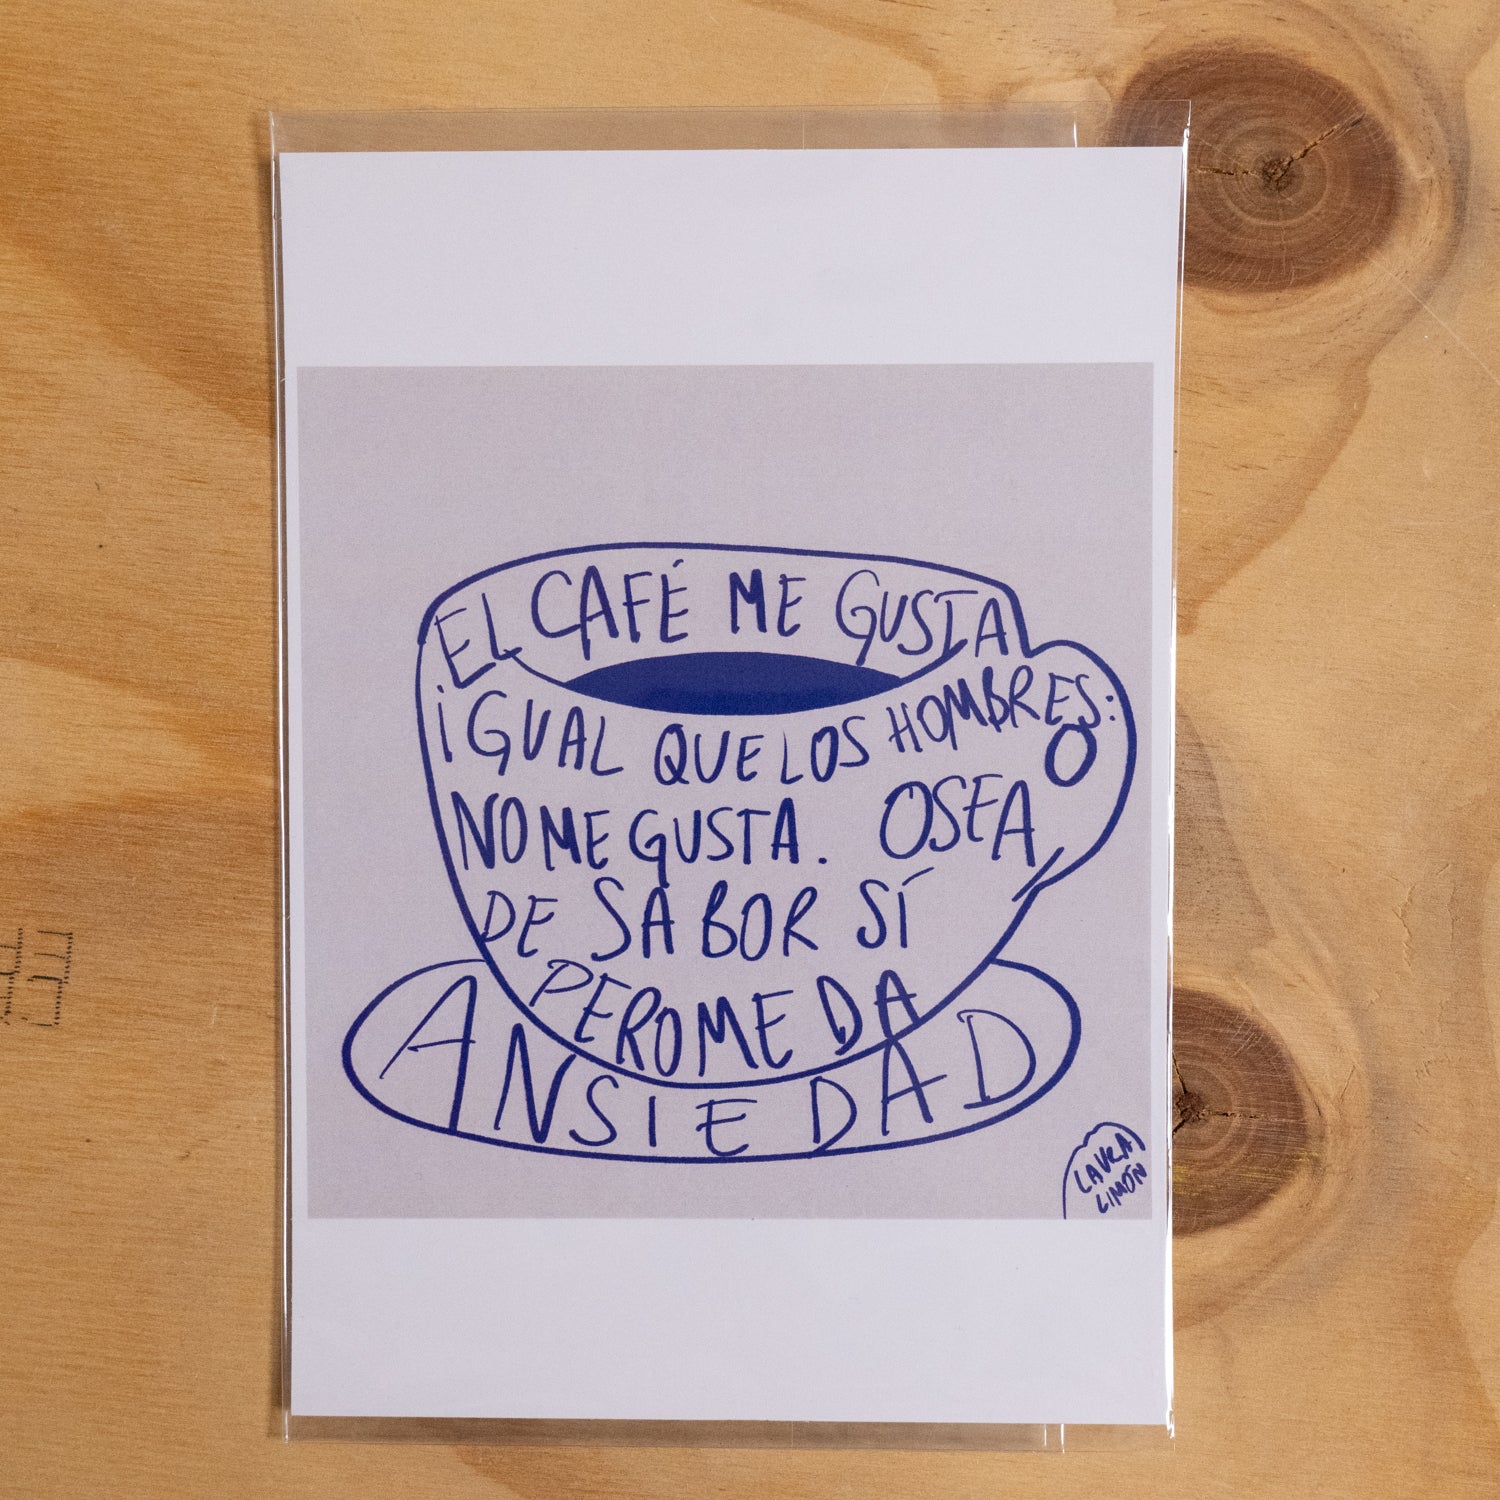 EL CAFÉ ME GUSTA
iGUAL QUE LOS HOMBRES:
NO ME GUSTA. OSEA
DE SABOR SÍ
PERO ME DA
ANSIEDAD
LAURA
LIMÓN